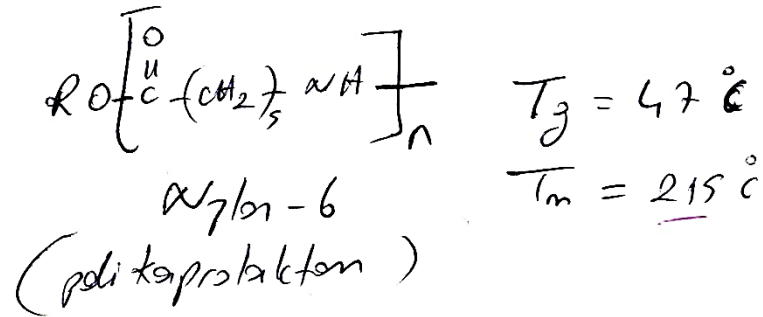 RO[C(=O)-(CH2)5 NH]n
Tg = 47 °C
Tm = 215 °C
Nylon-6
(polikaprolakton)